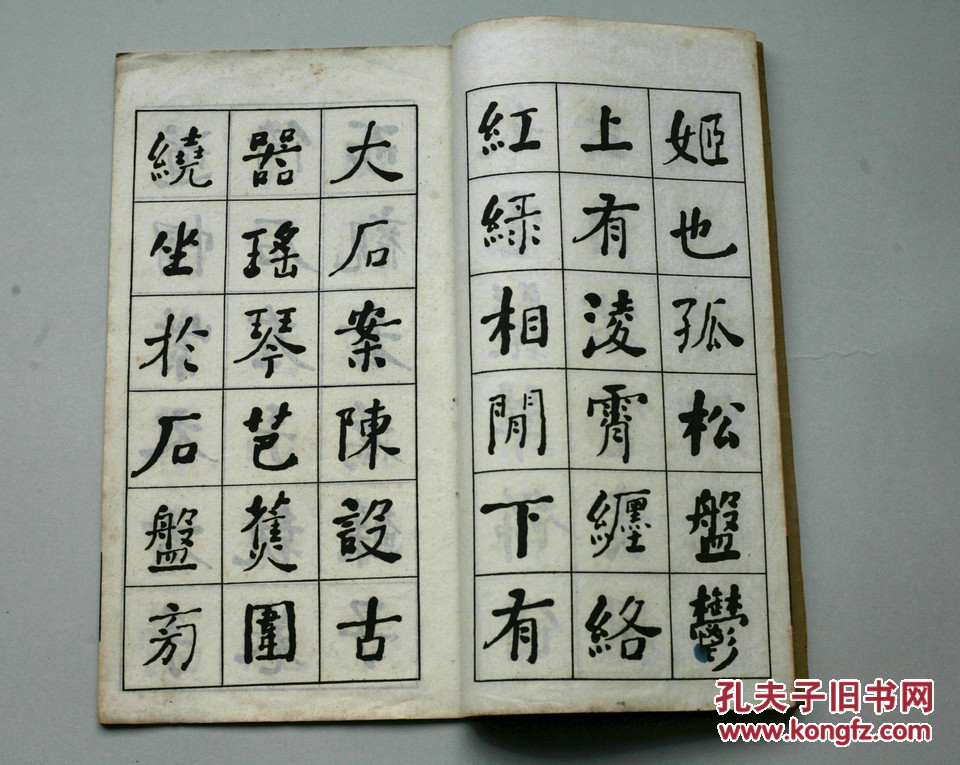 姬也孤松盤鬱
上有淩霄纏絡
紅綠相間下有
大石案陳設古
器瑤琴芭蕉圍
繞坐於石盤旁
孔夫子旧书网
www.kongfz.com